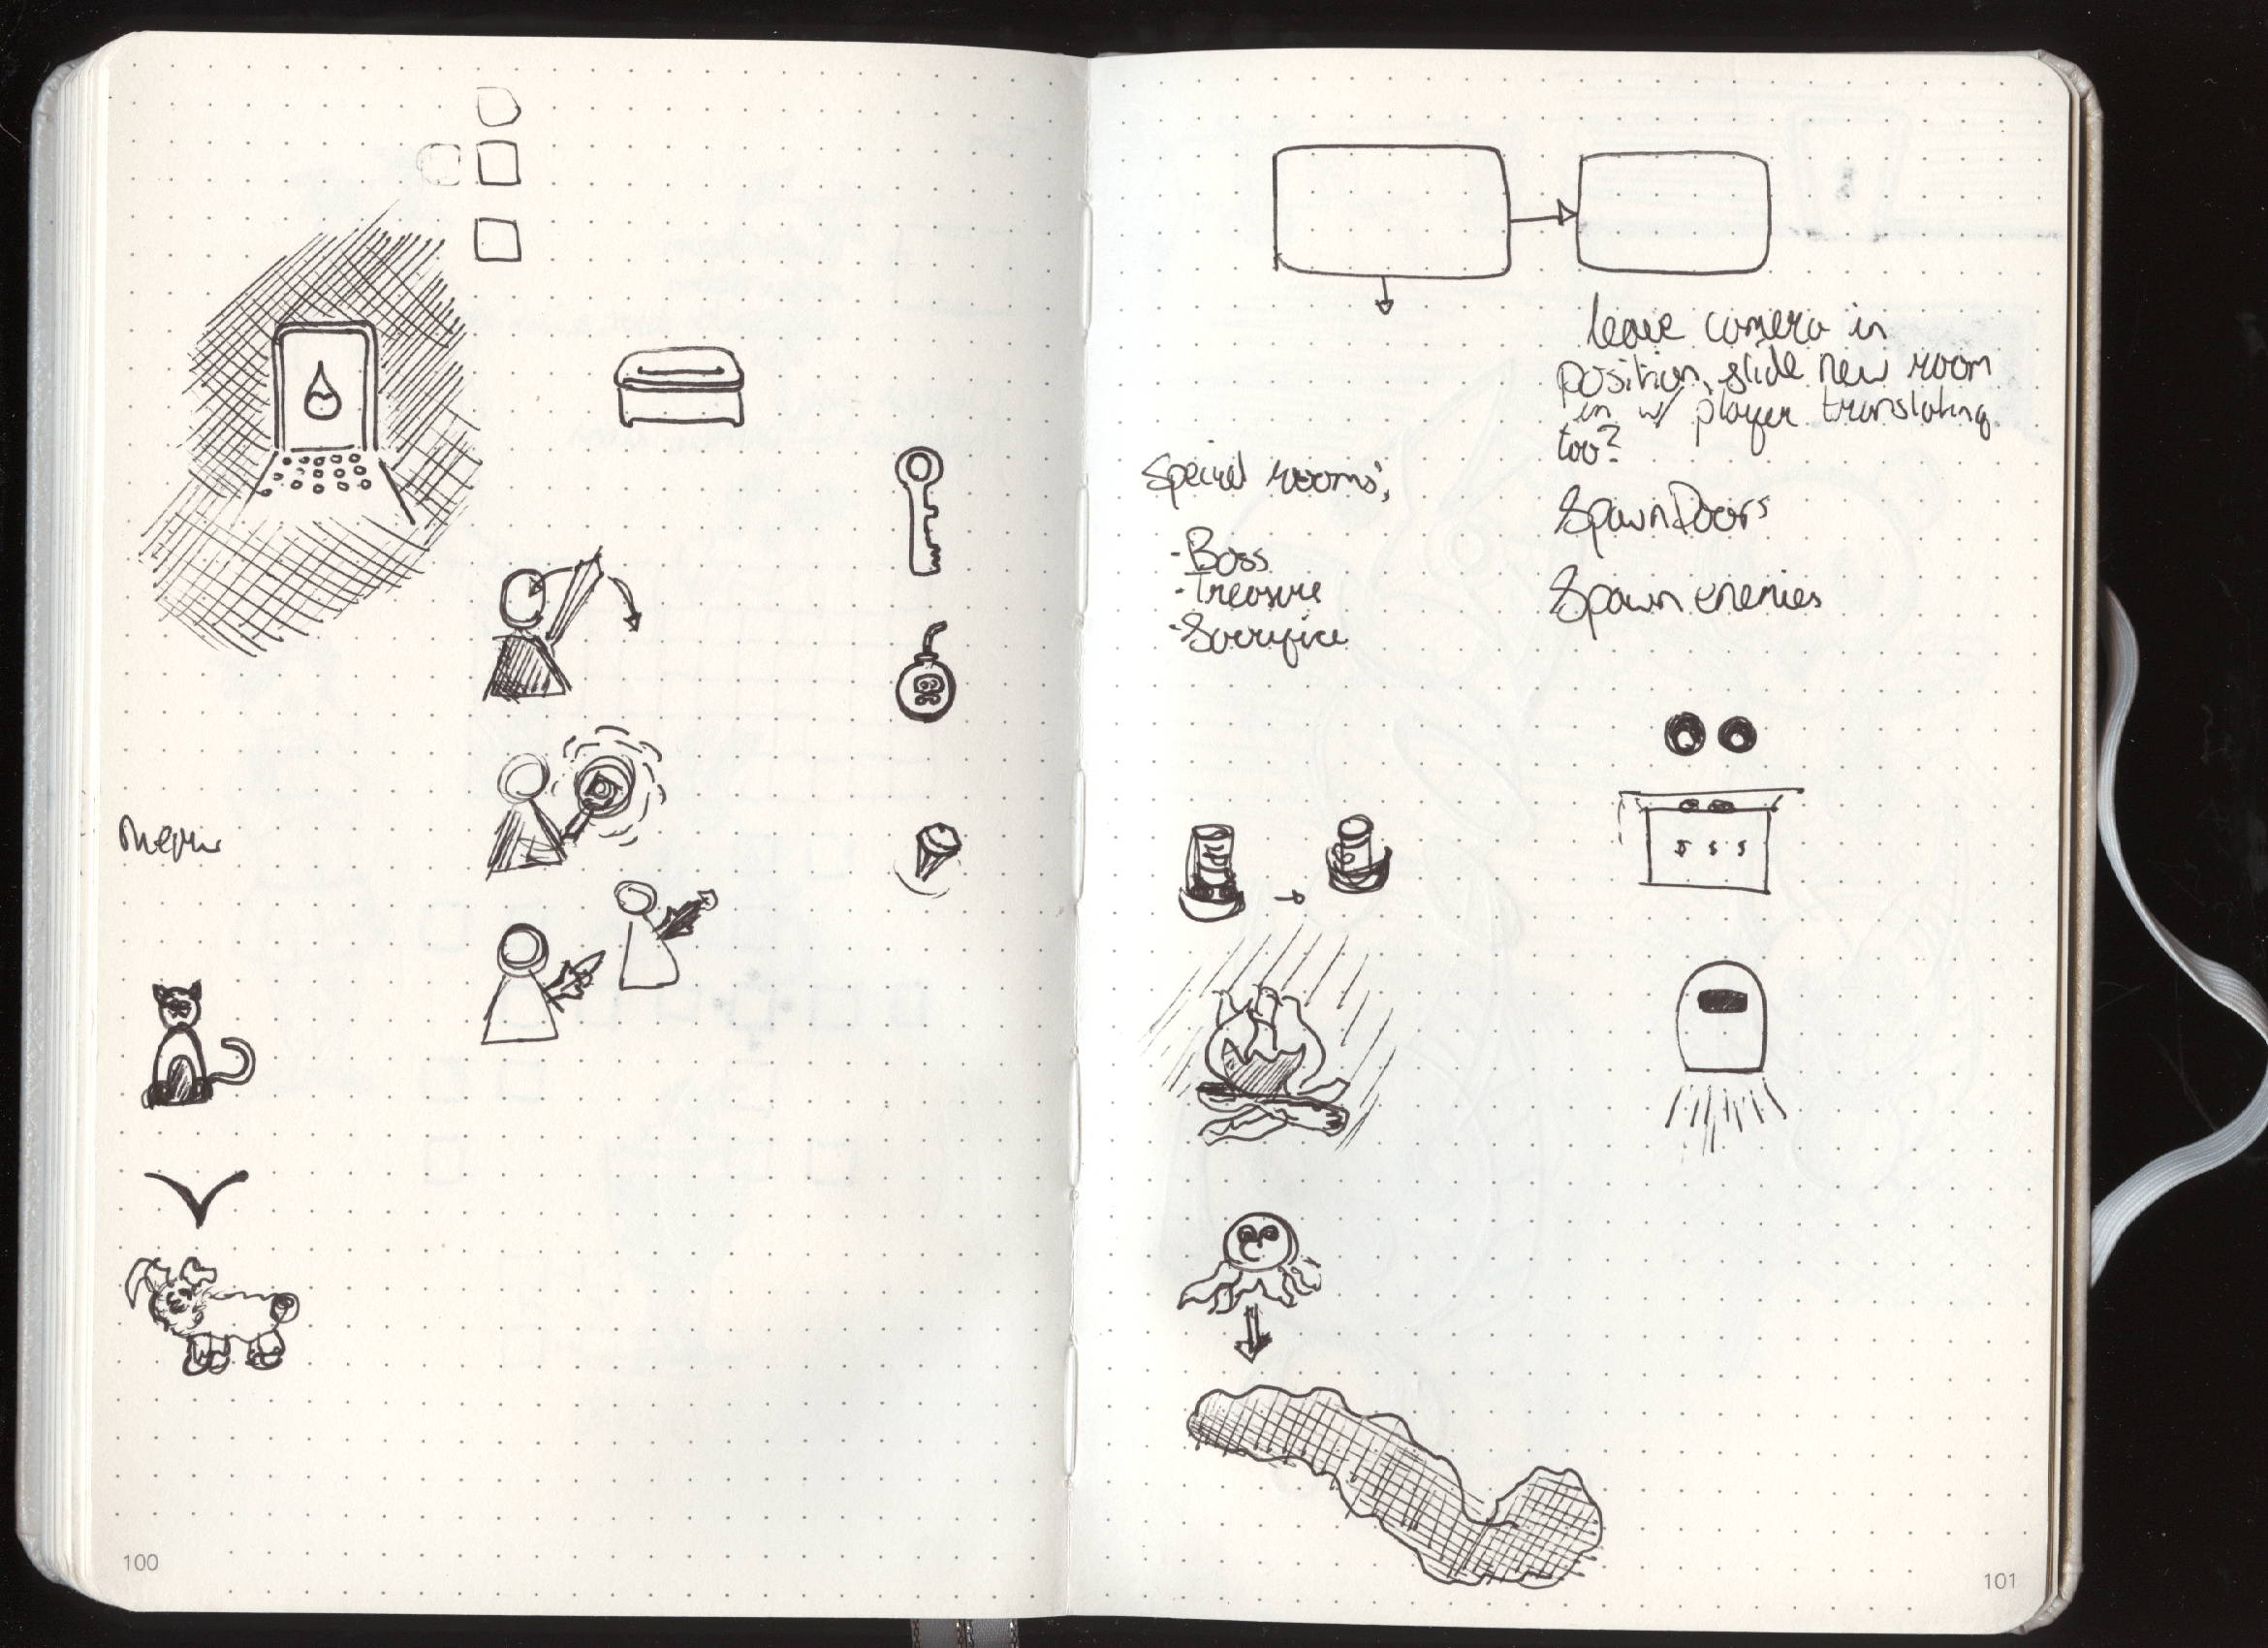 Meow
100
leave camera in
position, slide new room
in w/ player translating
too?
Special rooms:
- Boss
- Treasure
- Sacrifice
Spawn Doors
Spawn enemies
$ $ $
101